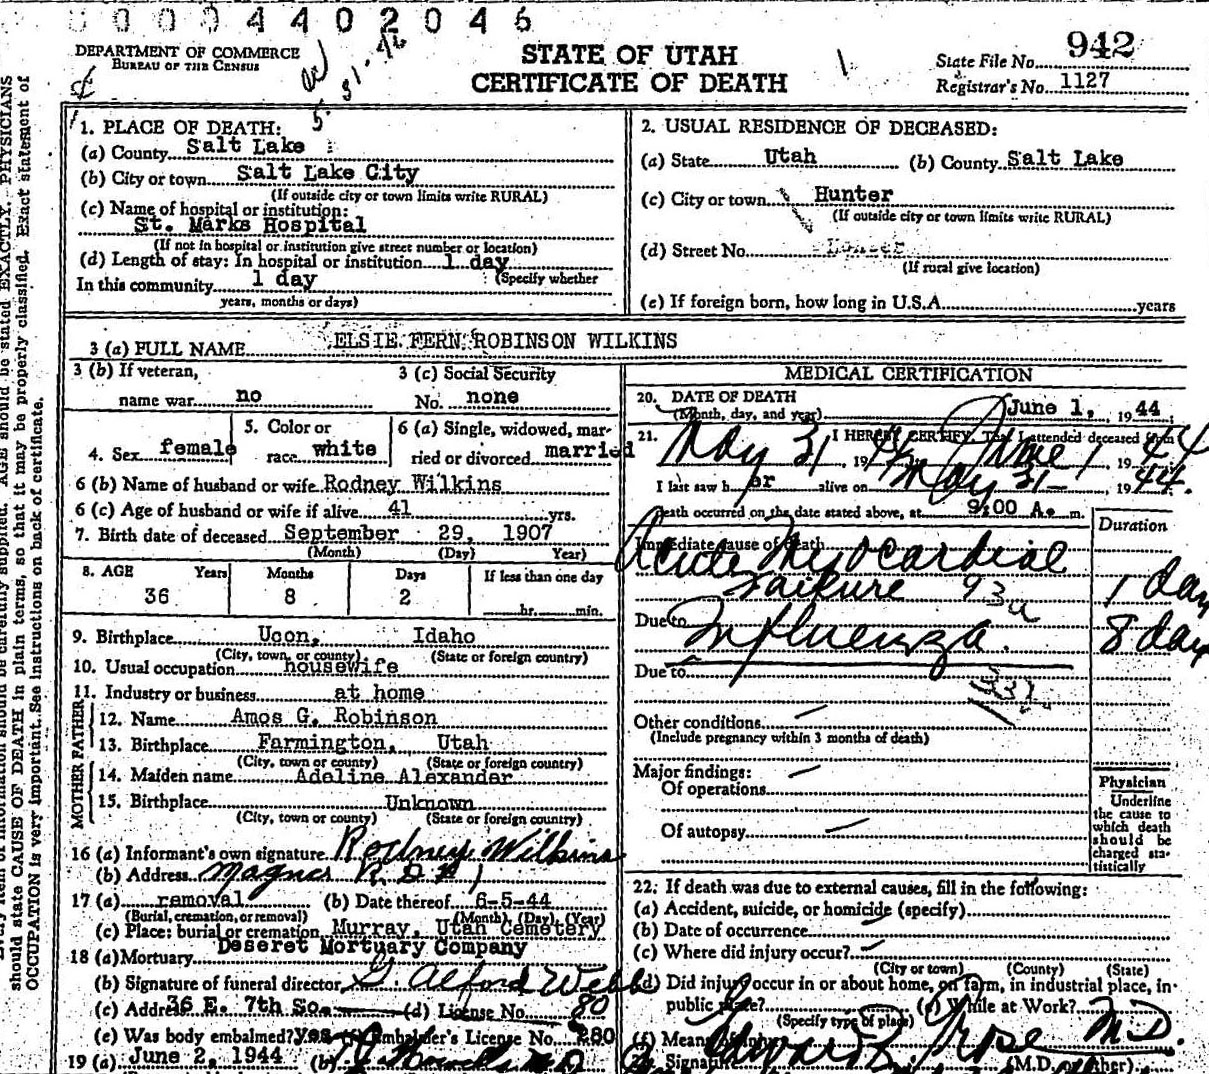 00004402046
DEPARTMENT OF COMMERCE
BUREAU OF THE CENSUS
STATE OF UTAH
CERTIFICATE OF DEATH
State File No. 942
Registrar's No. 1127
1. PLACE OF DEATH:
(a) County Salt Lake
(b) City or town Salt Lake City
(If outside city or town limits write RURAL)
(c) Name of hospital or institution:
St. Marks Hospital
(If not in hospital or institution give street number or location)
(d) Length of stay: In hospital or institution 1 day
(Specify whether
In this community 1 day
years, months or days)
2. USUAL RESIDENCE OF DECEASED:
(a) State Utah (b) County Salt Lake
(c) City or town Hunter
(If outside city or town limits write RURAL)
(d) Street No.
(If rural give location)
(e) If foreign born, how long in U.S.A. years
3 (a) FULL NAME ELSIE FERN ROBINSON WILKINS
3 (b) If veteran,
name war no
3 (c) Social Security
No. none
4. Sex female
5. Color or
race white
6 (a) Single, widowed, mar-
ried or divorced married
6 (b) Name of husband or wife Rodney Wilkins
6 (c) Age of husband or wife if alive 41 yrs.
7. Birth date of deceased September 29, 1907
(Month) (Day) Year)
8. AGE Years Months Days If less than one day
36 8 2 hr. min.
9. Birthplace Ucon, Idaho
(City, town, or county) (State or foreign country)
10. Usual occupation housewife
11. Industry or business at home
FATHER
12. Name Amos G. Robinson
13. Birthplace Farmington, Utah
(City, town or county) (State or foreign country)
MOTHER
14. Maiden name Adeline Alexander
15. Birthplace Unknown
(City, town or county) (State or foreign country)
16 (a) Informant's own signature Rodney Wilkins
(b) Address Magna R.D.# 1
17 (a) removal (b) Date thereof 6-5-44
(Burial, cremation, or removal) (Month) (Day) (Year)
(c) Place: burial or cremation Murray, Utah Cemetery
18 (a) Mortuary Deseret Mortuary Company
(b) Signature of funeral director G. Alford Webb
(c) Address 36 E. 7th So. (d) License No. 80
(e) Was body embalmed? yes Embalmer's License No. 280
19 (a) June 2, 1944 (b)
MEDICAL CERTIFICATION
20. DATE OF DEATH
(Month, day, and year) June 1, 1944
21. I HEREBY CERTIFY, That I attended deceased from
May 31, 1944 June 1 1944
I last saw her alive on May 31 1944.
Death occurred on the date stated above, at 9:00 A. m.
Duration
Immediate cause of death
Acute Myocardial
Failure 93a 1 day
Due to Influenza. 8 day
Due to
332
Other conditions
(Include pregnancy within 3 months of death)
Major findings:
Of operations
Of autopsy
Physician
Underline
the cause to
which death
should be
charged sta-
tistically
22. If death was due to external causes, fill in the following:
(a) Accident, suicide, or homicide (specify)
(b) Date of occurrence
(c) Where did injury occur?
(City or town) (County) (State)
(d) Did injury occur in or about home, on farm, in industrial place, in
public place? (e) While at Work?
(Specify type of place)
(f) Means of injury
Signature Edward L. Rose M.D.
(M.D. or other)
should state CAUSE OF DEATH in plain terms, so that it may be properly classified. Exact statement of
OCCUPATION is very important. See instructions on back of certificate.